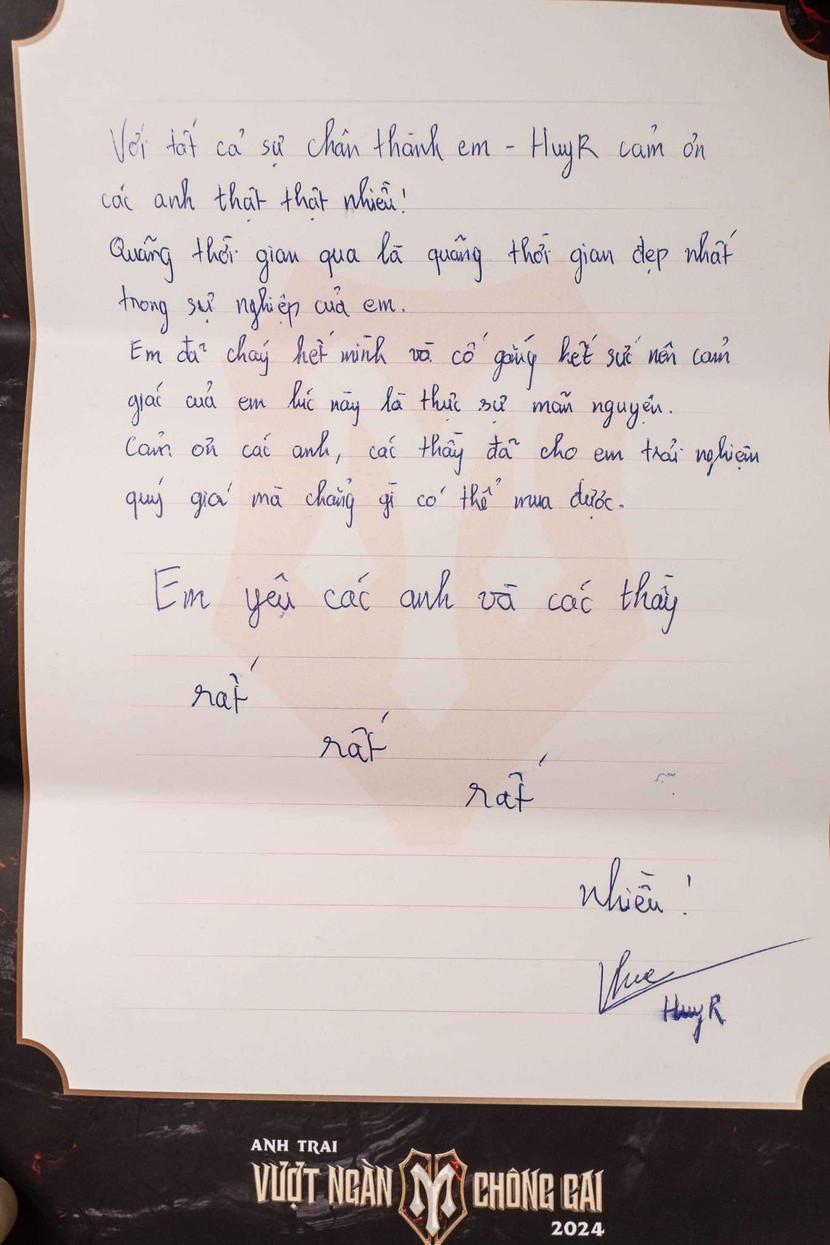 Với tất cả sự chân thành em - HuyR cảm ơn
các anh thật thật nhiều!
Quãng thời gian qua là quãng thời gian đẹp nhất
trong sự nghiệp của em.
Em đã cháy hết mình và cố gắng hết sức nên cảm
giác của em lúc này là thực sự mãn nguyện.
Cảm ơn các anh, các thầy đã cho em trải nghiệm
quý giá mà chẳng gì có thể mua được.
Em yêu các anh và các thầy
rất
rất
rất
nhiều!
HuyR
ANH TRAI
VƯỢT NGÀN CHÔNG GAI
2024